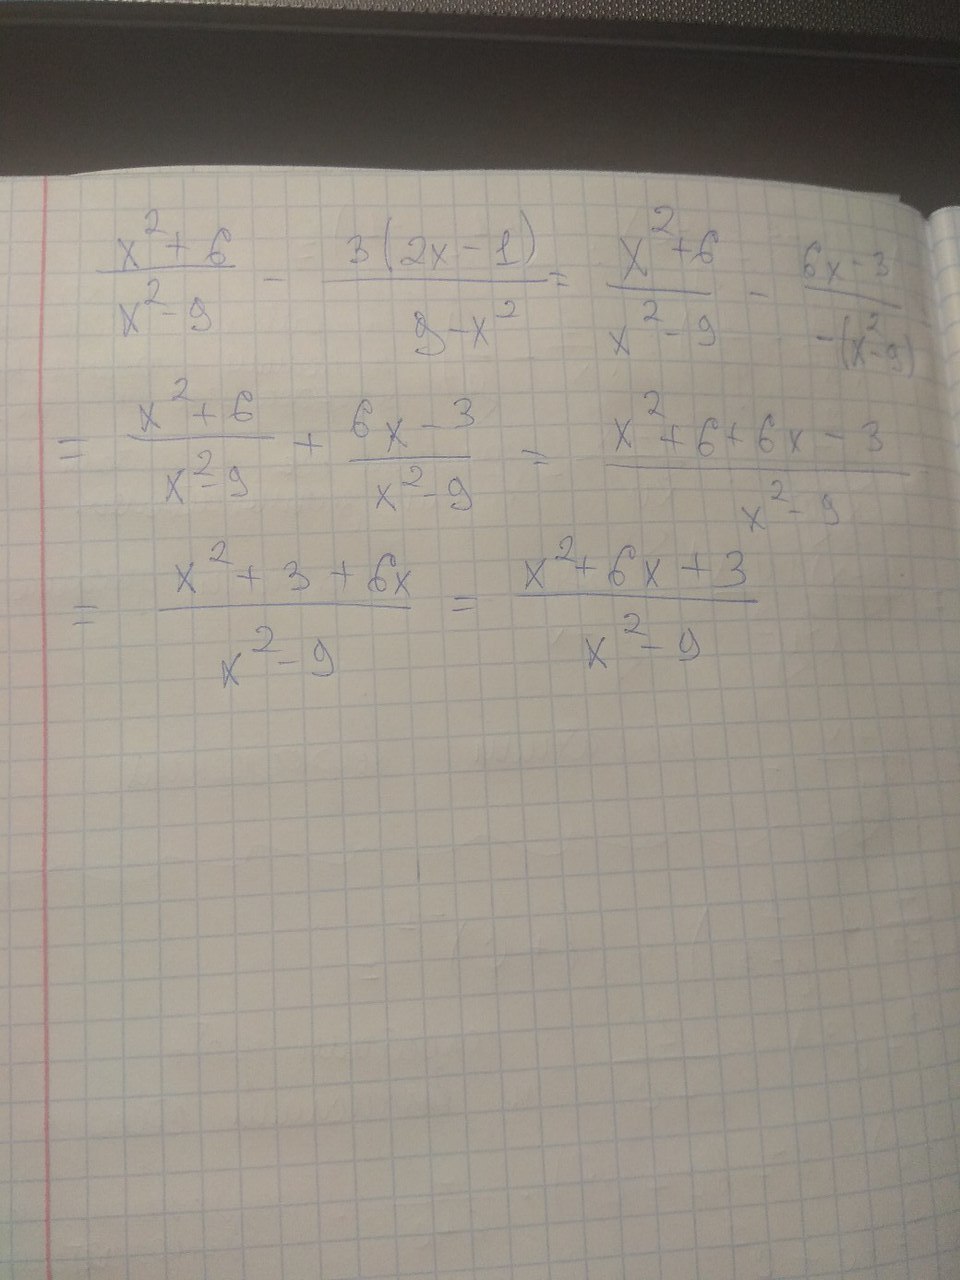 (x² + 6)/(x² - 9) - 3(2x - 1)/(9 - x²) = (x² + 6)/(x² - 9) - (6x - 3)/(-(x² - 9))
= (x² + 6)/(x² - 9) + (6x - 3)/(x² - 9) = (x² + 6 + 6x - 3)/(x² - 9)
= (x² + 3 + 6x)/(x² - 9) = (x² + 6x + 3)/(x² - 9)